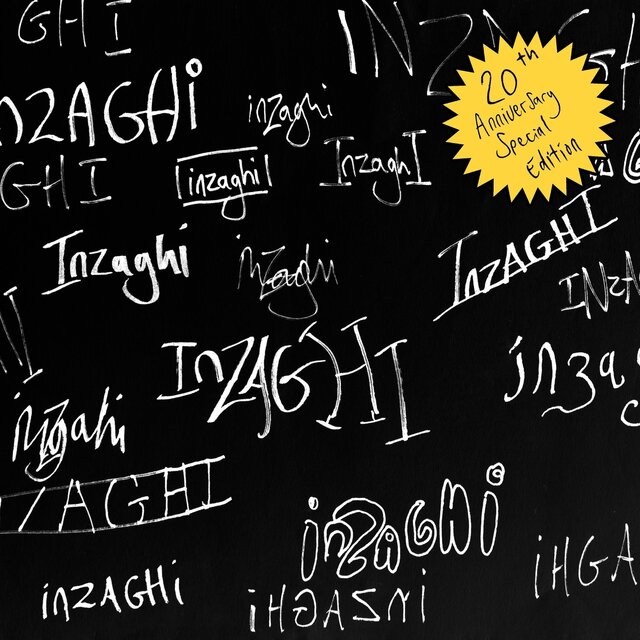 GHI
INZ
20th
Anniversary
Special
Edition
INZAGHI
inzaghi
GHI
inzaghi
InzaghI
Inzaghi
inzaghi
InZAGHI
INZA
InZAGHI
inzag
inzaghi
ZAGHI
inZAGHI
inZAGHI
iHGASNI
iHGA